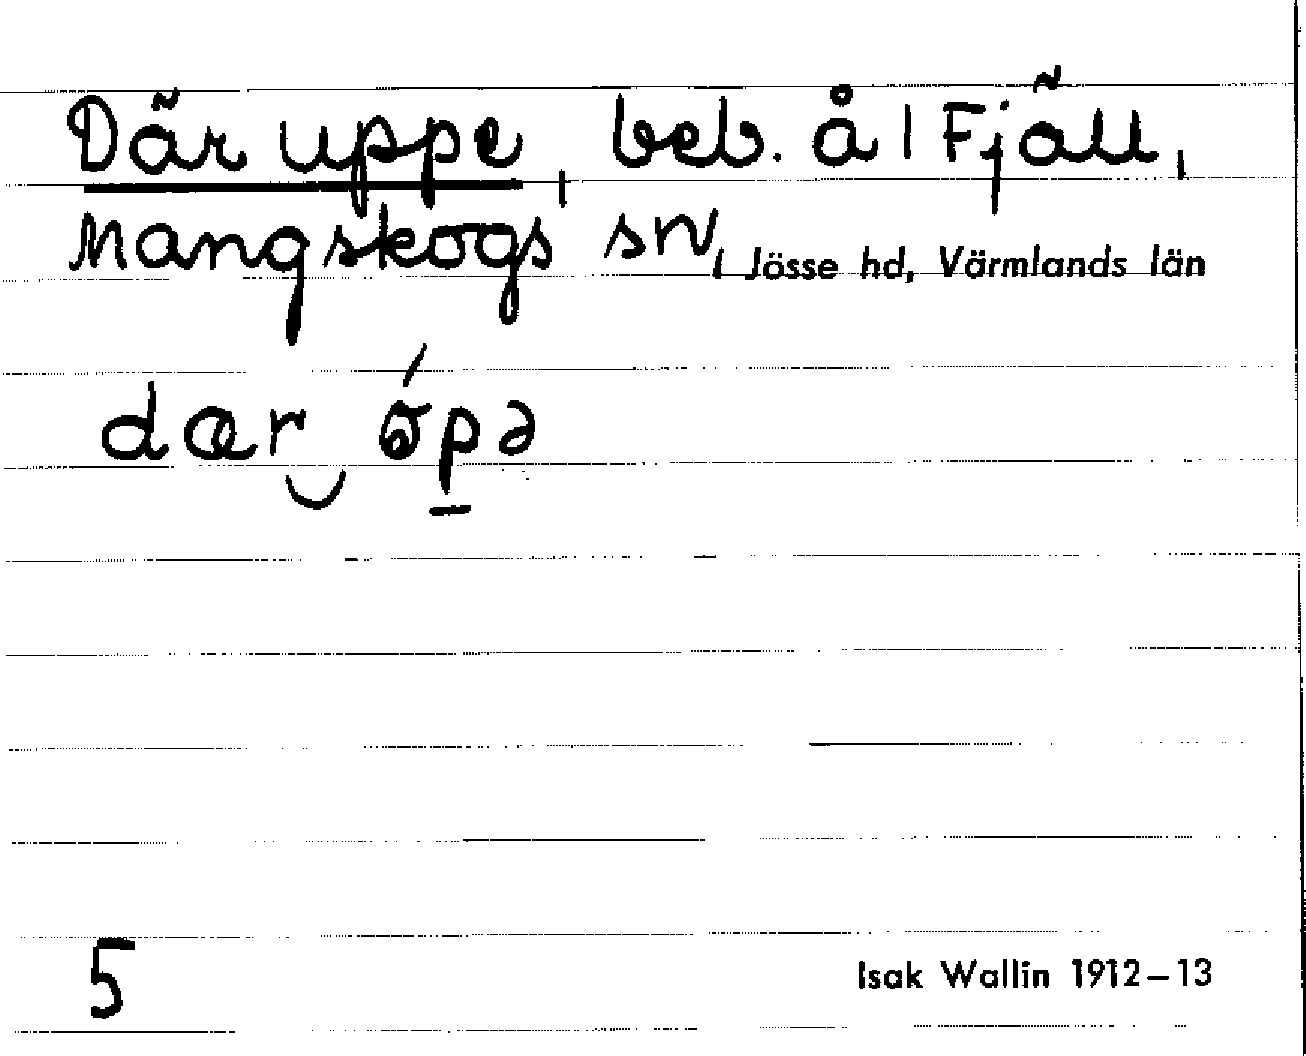 Där uppe, beb. å 1 Fjäll,
Mangskogs sn, Jösse hd, Värmlands län
dær ópə
5
Isak Wallin 1912–13